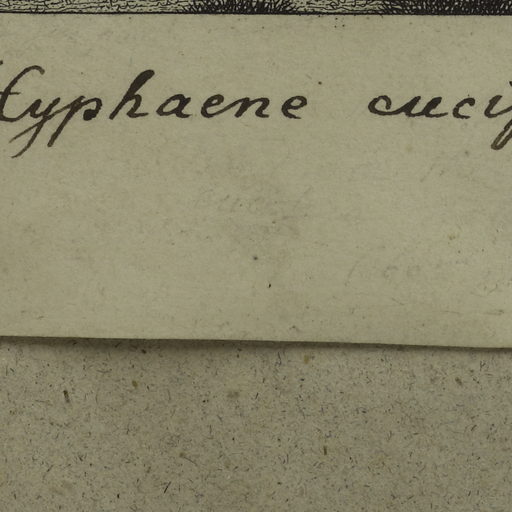 Hyphaene cuci